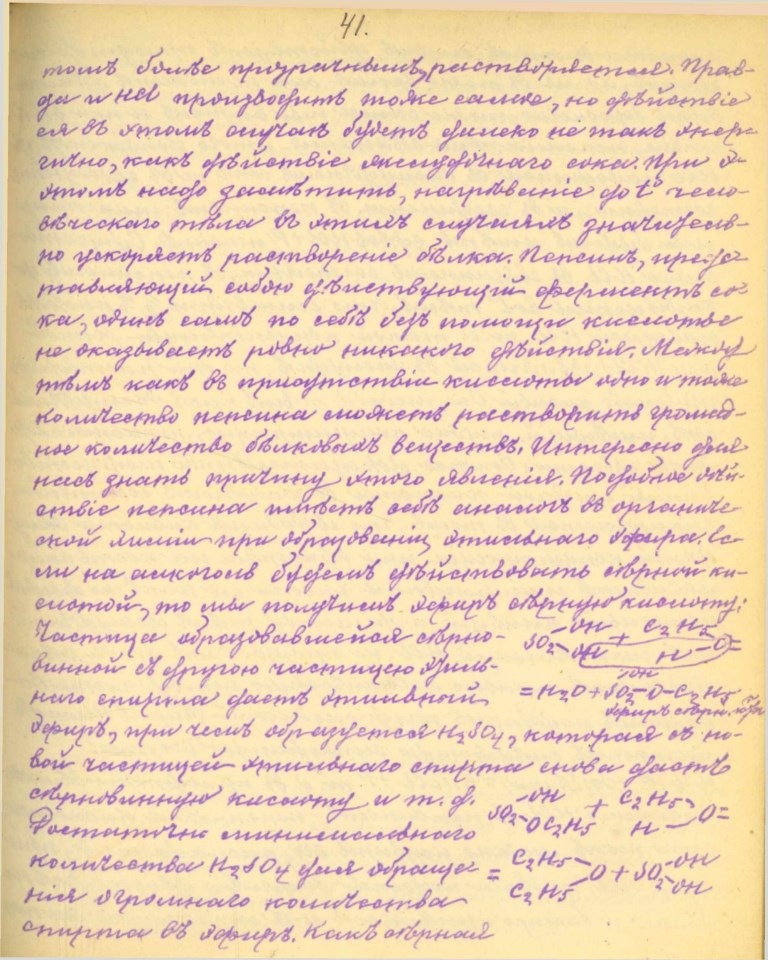 41.
томъ болѣе прозрачнымъ, растворяется. Прав-
да и HCl производитъ тоже самое, но дѣйствіе
ея въ этомъ случаѣ будетъ далеко не такъ энер-
гично, какъ дѣйствіе желудочнаго сока. При э-
этомъ надо замѣтить, нагрѣваніе до t° чело-
вѣческаго тѣла въ этихъ случаяхъ значитель-
но ускоряетъ раствореніе бѣлка. Пепсинъ, предс-
тавляющій собою дѣйствующій ферментъ со-
ка, одинъ самъ по себѣ безъ помощи кислоты
не оказываетъ ровно никакого дѣйствія. Между
тѣмъ какъ въ присутствіи кислоты одно и тоже
количество пепсина сможетъ растворить громад-
ное количество бѣлковыхъ веществъ. Интересно для
насъ знать причину этого явленія. Подобное дѣй-
ствіе пепсина имѣетъ себѣ аналогъ въ органиче-
ской химіи при образованіи этильнаго эфира. Ес-
ли на алкоголь будемъ дѣйствовать сѣрной ки-
слотой, то мы получимъ эфиръ сѣрную кислоту;
Частица образовавшейся сѣрно- SO₂-OH -OH + C₂H₅ H -O=
винной съ другою частицею этиль-
наго спирта дастъ этильный = H₂O + SO₂-OH -O-C₂H₅
эфиръ сѣрн. к-ты
эфиръ, при чемъ образуется H₂SO₄, которая съ но-
вой частицей этильнаго спирта снова дастъ
сѣрновинную кислоту и т. д. SO₂-OH -OC₂H₅ + C₂H₅ H -O=
Достаточно минимальнаго
количества H₂SO₄ для обраще- = C₂H₅ C₂H₅ >O + SO₂-OH -OH
нія огромнаго количества
спирта въ эфиръ. Какъ сѣрная